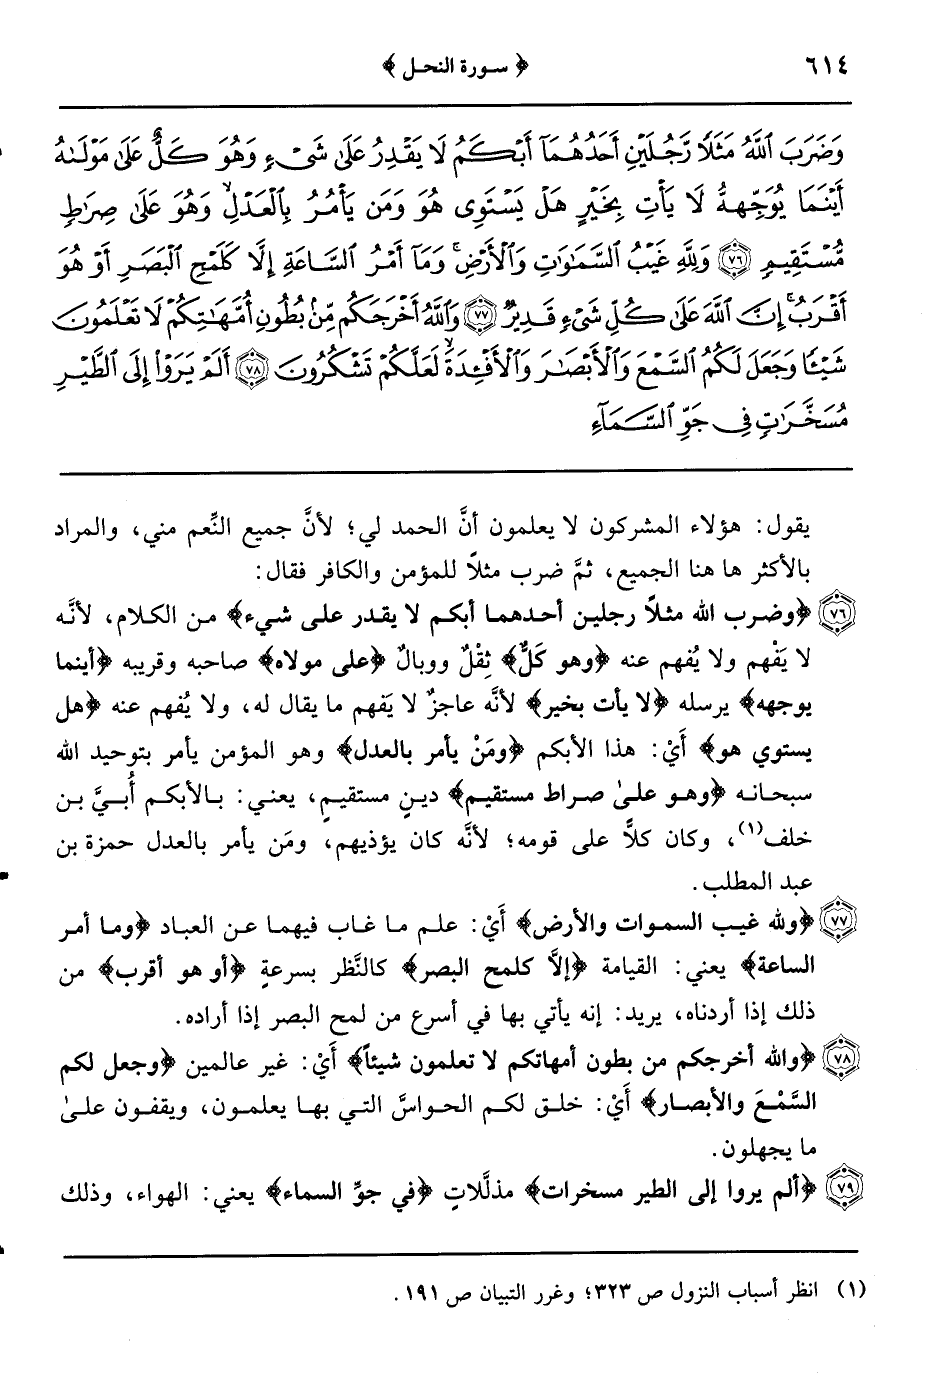 ٦١٤ ﴿ سورة النحل ﴾
وَضَرَبَ ٱللَّهُ مَثَلًا رَّجُلَيْنِ أَحَدُهُمَآ أَبْكَمُ لَا يَقْدِرُ عَلَىٰ شَىْءٍ وَهُوَ كَلٌّ عَلَىٰ مَوْلَىٰهُ
أَيْنَمَا يُوَجِّههُّ لَا يَأْتِ بِخَيْرٍ هَلْ يَسْتَوِى هُوَ وَمَن يَأْمُرُ بِٱلْعَدْلِ ۙ وَهُوَ عَلَىٰ صِرَٰطٍ
مُّسْتَقِيمٍ ﴿٧٦﴾ وَلِلَّهِ غَيْبُ ٱلسَّمَٰوَٰتِ وَٱلْأَرْضِ ۚ وَمَآ أَمْرُ ٱلسَّاعَةِ إِلَّا كَلَمْحِ ٱلْبَصَرِ أَوْ هُوَ
أَقْرَبُ ۚ إِنَّ ٱللَّهَ عَلَىٰ كُلِّ شَىْءٍ قَدِيرٌ ﴿٧٧﴾ وَٱللَّهُ أَخْرَجَكُم مِّنۢ بُطُونِ أُمَّهَٰتِكُمْ لَا تَعْلَمُونَ
شَيْـًٔا وَجَعَلَ لَكُمُ ٱلسَّمْعَ وَٱلْأَبْصَٰرَ وَٱلْأَفْـِٔدَةَ ۙ لَعَلَّكُمْ تَشْكُرُونَ ﴿٧٨﴾ أَلَمْ يَرَوْا۟ إِلَى ٱلطَّيْرِ
مُسَخَّرَٰتٍ فِى جَوِّ ٱلسَّمَآءِ
يقول: هؤلاء المشركون لا يعلمون أنَّ الحمد لي؛ لأنَّ جميع النِّعم مني، والمراد
بالأكثر ها هنا الجميع، ثمَّ ضرب مثلاً للمؤمن والكافر فقال:
﴿٧٦﴾ ﴿وضرب الله مثلاً رجلين أحدهما أبكم لا يقدر على شيء﴾ من الكلام، لأنَّه
لا يَفْهم ولا يُفْهم عنه ﴿وهو كَلٌّ﴾ ثِقْلٌ ووبالٌ ﴿على مولاه﴾ صاحبه وقريبه ﴿أينما
يوجهه﴾ يرسله ﴿لا يأت بخير﴾ لأنَّه عاجزٌ لا يَفهم ما يقال له، ولا يُفهم عنه ﴿هل
يستوي هو﴾ أَيْ: هذا الأبكم ﴿ومَنْ يأمر بالعدل﴾ وهو المؤمن يأمر بتوحيد الله
سبحانه ﴿وهو علىٰ صراط مستقيم﴾ دينٍ مستقيمٍ، يعني: بالأبكم أُبيَّ بن
خلف(١)، وكان كلاًّ على قومه؛ لأنَّه كان يؤذيهم، ومَن يأمر بالعدل حمزة بن
عبد المطلب.
﴿٧٧﴾ ﴿ولله غيب السموات والأرض﴾ أَيْ: علم ما غاب فيهما عن العباد ﴿وما أمر
الساعة﴾ يعني: القيامة ﴿إلاَّ كلمح البصر﴾ كالنَّظر بسرعةٍ ﴿أو هو أقرب﴾ من
ذلك إذا أردناه، يريد: إنه يأتي بها في أسرع من لمح البصر إذا أراده.
﴿٧٨﴾ ﴿والله أخرجكم من بطون أمهاتكم لا تعلمون شيئاً﴾ أَيْ: غير عالمين ﴿وجعل لكم
السَّمْعَ والأبصار﴾ أَيْ: خلق لكم الحواسَّ التي بها يعلمون، ويقفون علىٰ
ما يجهلون.
﴿٧٩﴾ ﴿ألم يروا إلى الطير مسخرات﴾ مذلَّلاتٍ ﴿في جوِّ السماء﴾ يعني: الهواء، وذلك
(١) انظر أسباب النزول ص ٣٢٣؛ وغرر التبيان ص ١٩١.